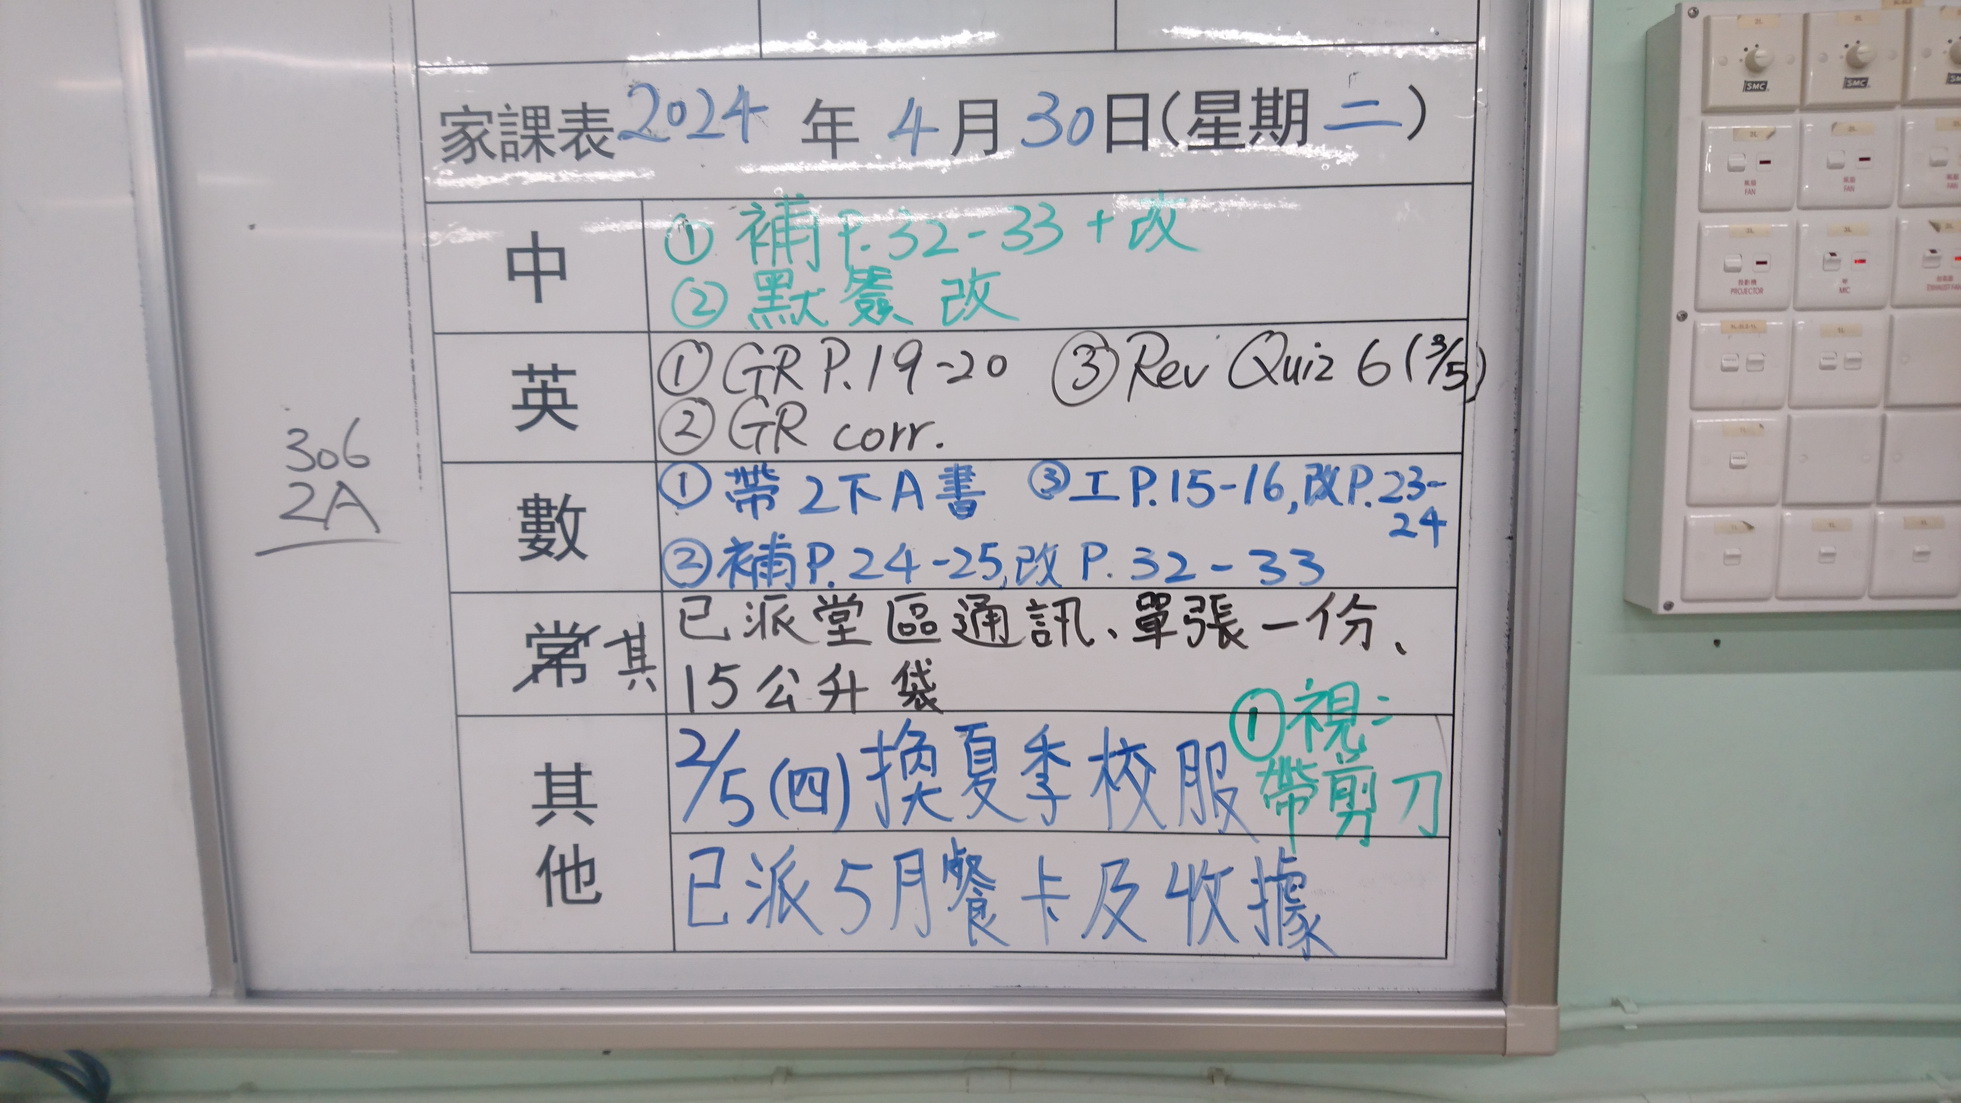 家課表 2024 年 4 月 30 日(星期 二)
306
2A
中
① 補 P.32-33 + 改
② 默簽改
英
① GR P.19-20 ③ Rev Quiz 6 (3/5)
② GR corr.
數
① 帶 2下A書 ③ 工 P.15-16, 改 P.23-
24
② 補 P.24-25, 改 P.32-33
常 其
已派堂區通訊、單張一份、
15公升袋
其他
2/5 (四) 換夏季校服
① 視:
帶剪刀
已派5月餐卡及收據
SMC
SMC
風扇
FAN
風扇
FAN
FAN
PROJECTOR
MIC
EXHAUST FAN